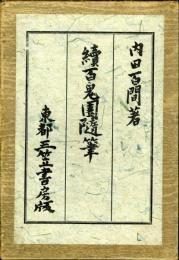 内田百間著
續百鬼園隨筆
東都三笠書房版